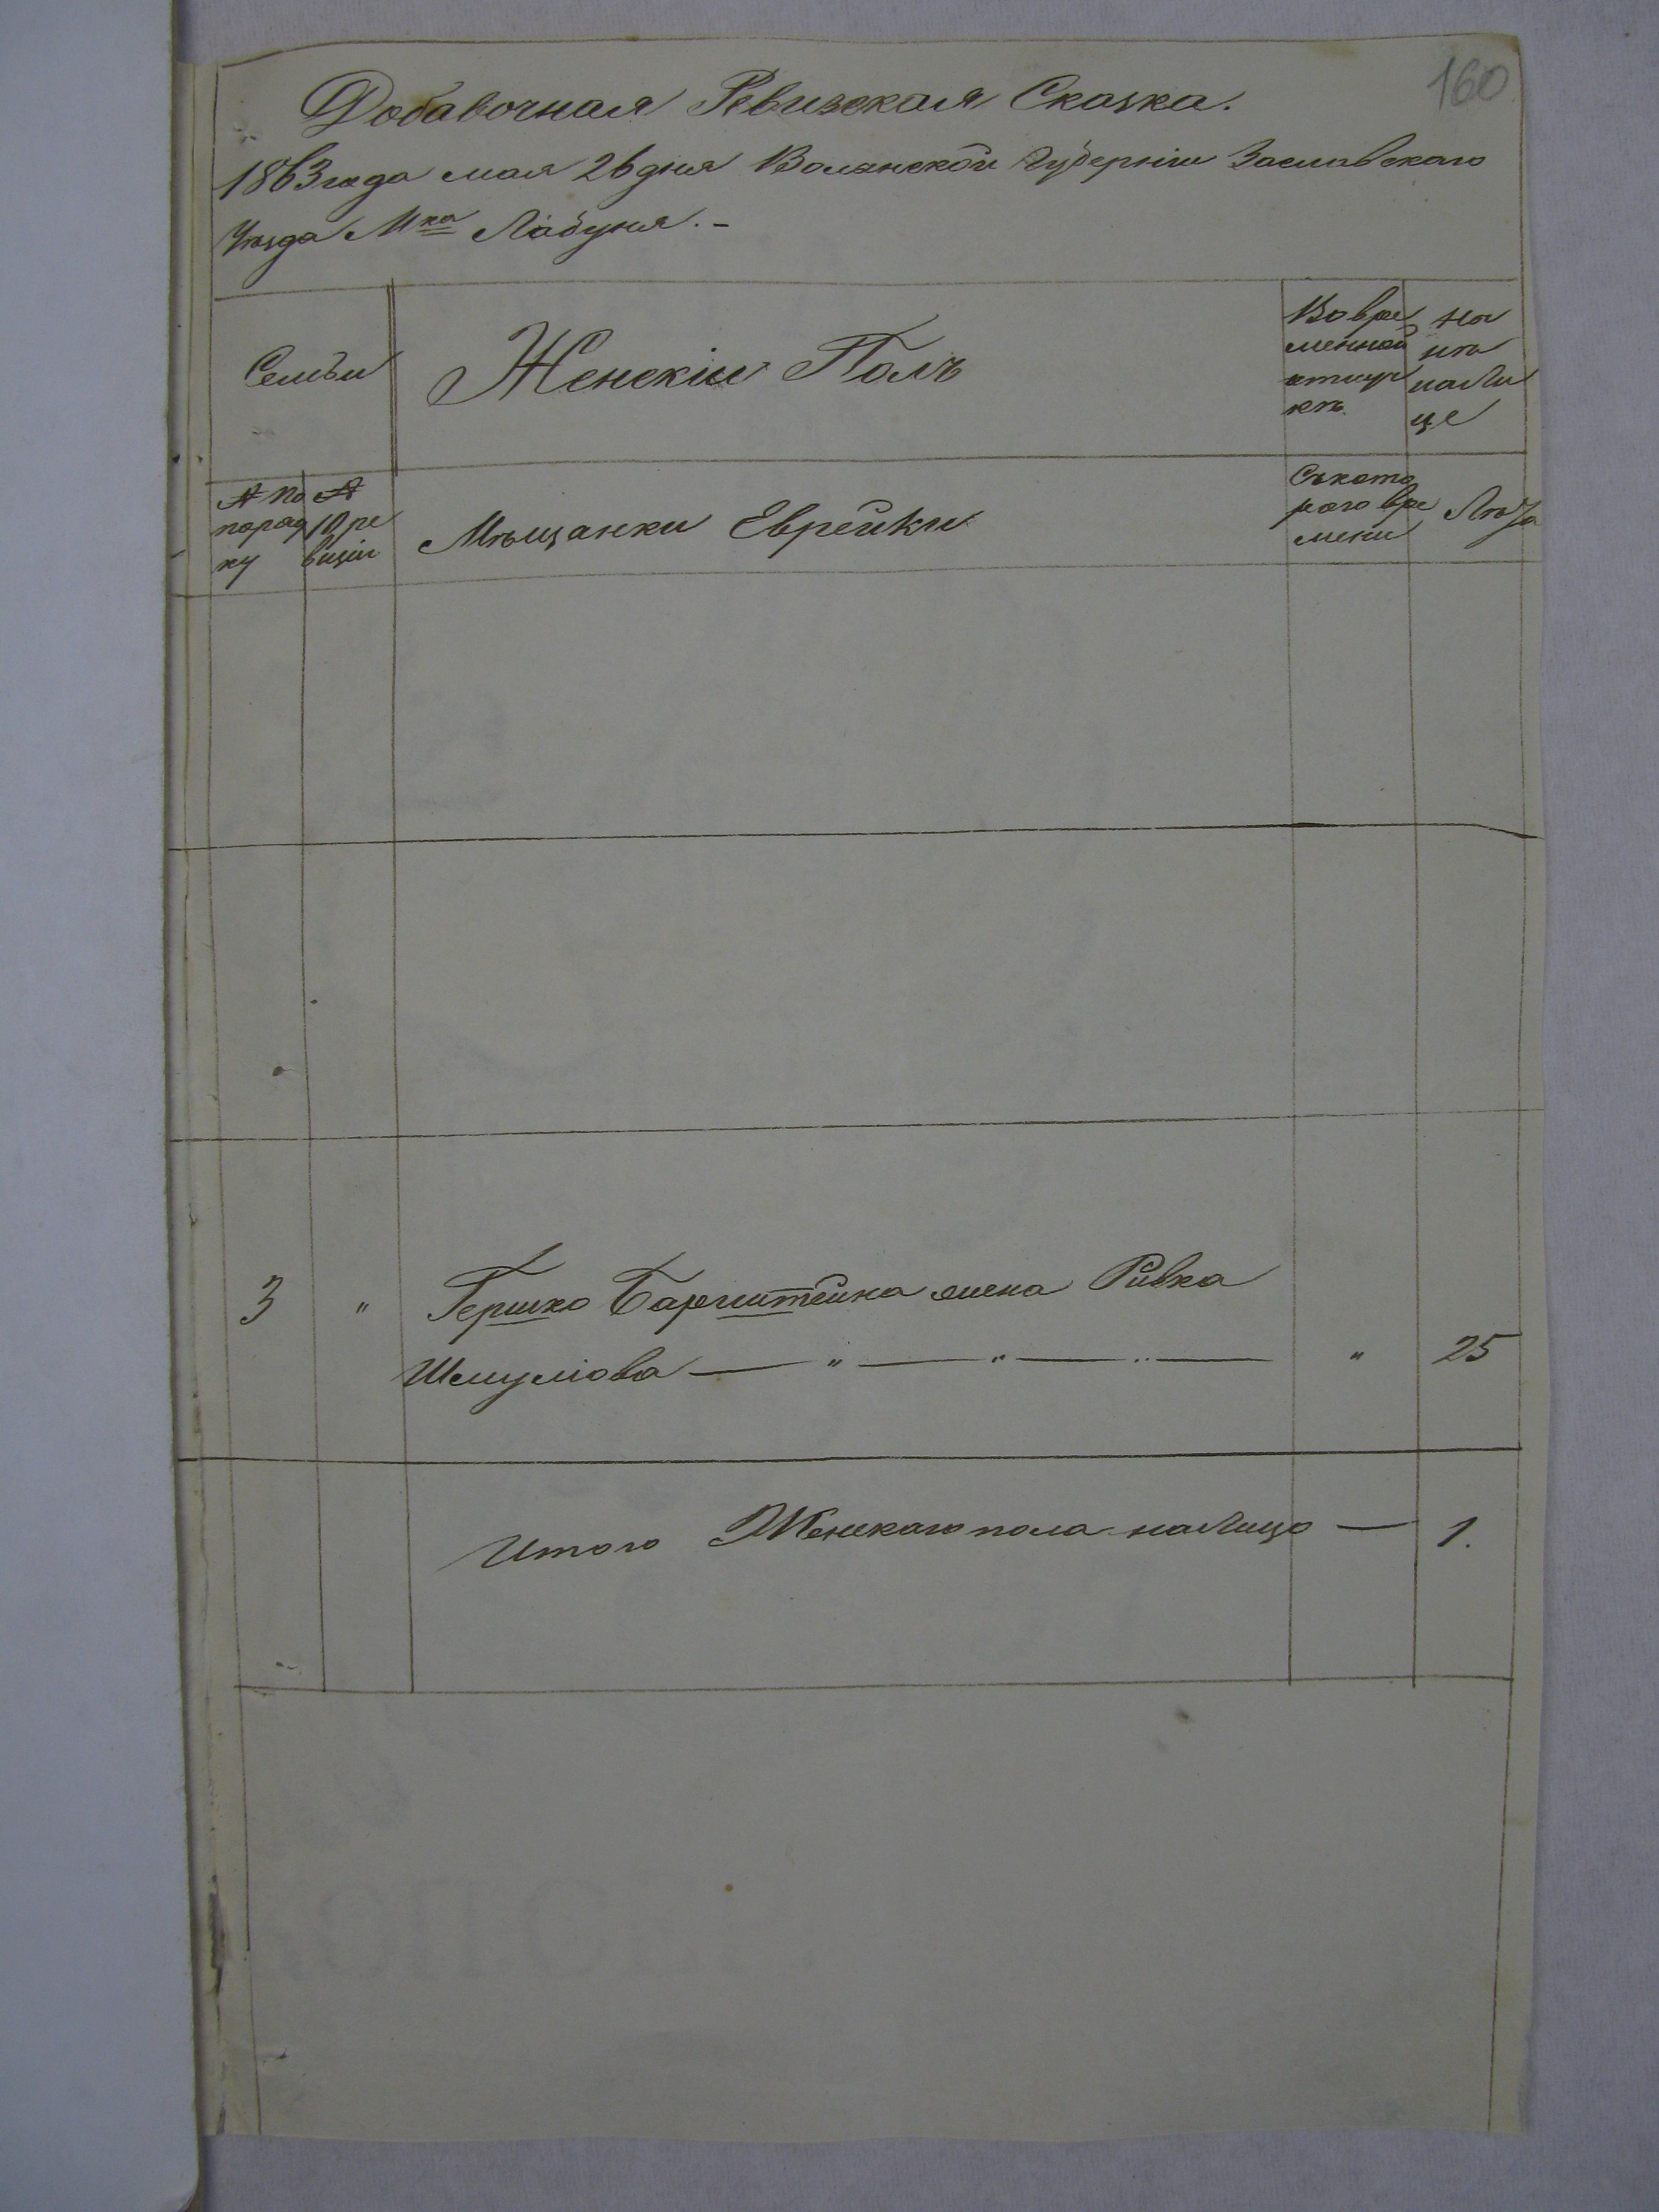 160
Добавочная Ревизская Сказка.
1863 года мая 26 дня Волынской Губерніи Заславскаго
Уезда Мка Лабуня. -
Семьи
Женскій Полъ
Во вре
менной
отлуч
кѣ.
на
ли
це
№ по
поряд
ку
№
10 ре
визіи
Мѣщанки Еврейки
Съ кото
раго вре
мени
Лѣта
3 " Гершко Баренштейна жена Ривка
Шмулiова — " — " — " — " 25
Итого Женскаго пола на лицо — 1.